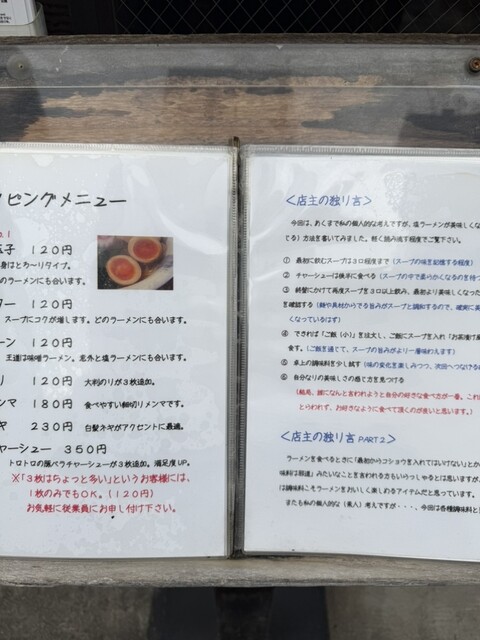 ピングメニュー
玉子 120円
身はとろ〜りタイプ。
のラーメンにも合います。
ター 120円
スープにコクが増します。どのラーメンにも合います。
ーン 120円
王道は味噌ラーメン。意外と塩ラーメンにも合います。
り 120円 大判のりが3枚追加。
ンマ 180円 食べやすい細切りメンマです。
ギ 230円 白髪ネギがアクセントに最適。
ャーシュー 350円
トロトロの豚バラチャーシューが3枚追加。満足度UP。
※「3枚はちょっと多い」というお客様には、
1枚のみでもOK。(120円)
お気軽に従業員にお申し付け下さい。
<店主の独り言>
今回は、あくまで私の個人的な考えですが、塩ラーメンが美味しくな
てる)方法を書いてみました。軽く読み流す程度でご覧下さい。
① 最初に飲むスープは3口程度まで(スープの味を記憶する程度)
② チャーシューは後半に食べる(スープの中で柔らかくなるのを待つ
③ 終盤にかけて再度スープを3口以上飲み、最初より美味しくな
を確認する(麺や具材からでる旨みがスープと調和するので、確実に美
くなっているはず)
④ できれば「ご飯(小)」を注文し、ご飯にスープを入れ「お茶漬け風
食す。(ご飯を通して、スープの旨みがより一層味わえます)
⑤ 卓上の調味料を少し試す(味の変化を楽しみつつ、次回へつなげる
⑥ 自分なりの美味しさの感じ方を見つける
(結局、誰になんと言われようと自分の好きな食べ方が一番。これ
とらわれず、お好きなように食べて頂くのが良いと思います。)
<店主の独り言 PART2>
ラーメンを食べるときに「最初からコショウを入れてはいけない」とか
味料は邪道」みたいなことを言われる方もいらっしゃるとは思いますが、
は調味料こそラーメンをおいしく楽しめるアイテムだと思っています。
またも私の個人的な(素人)考えですが・・・、今回は各種調味料と